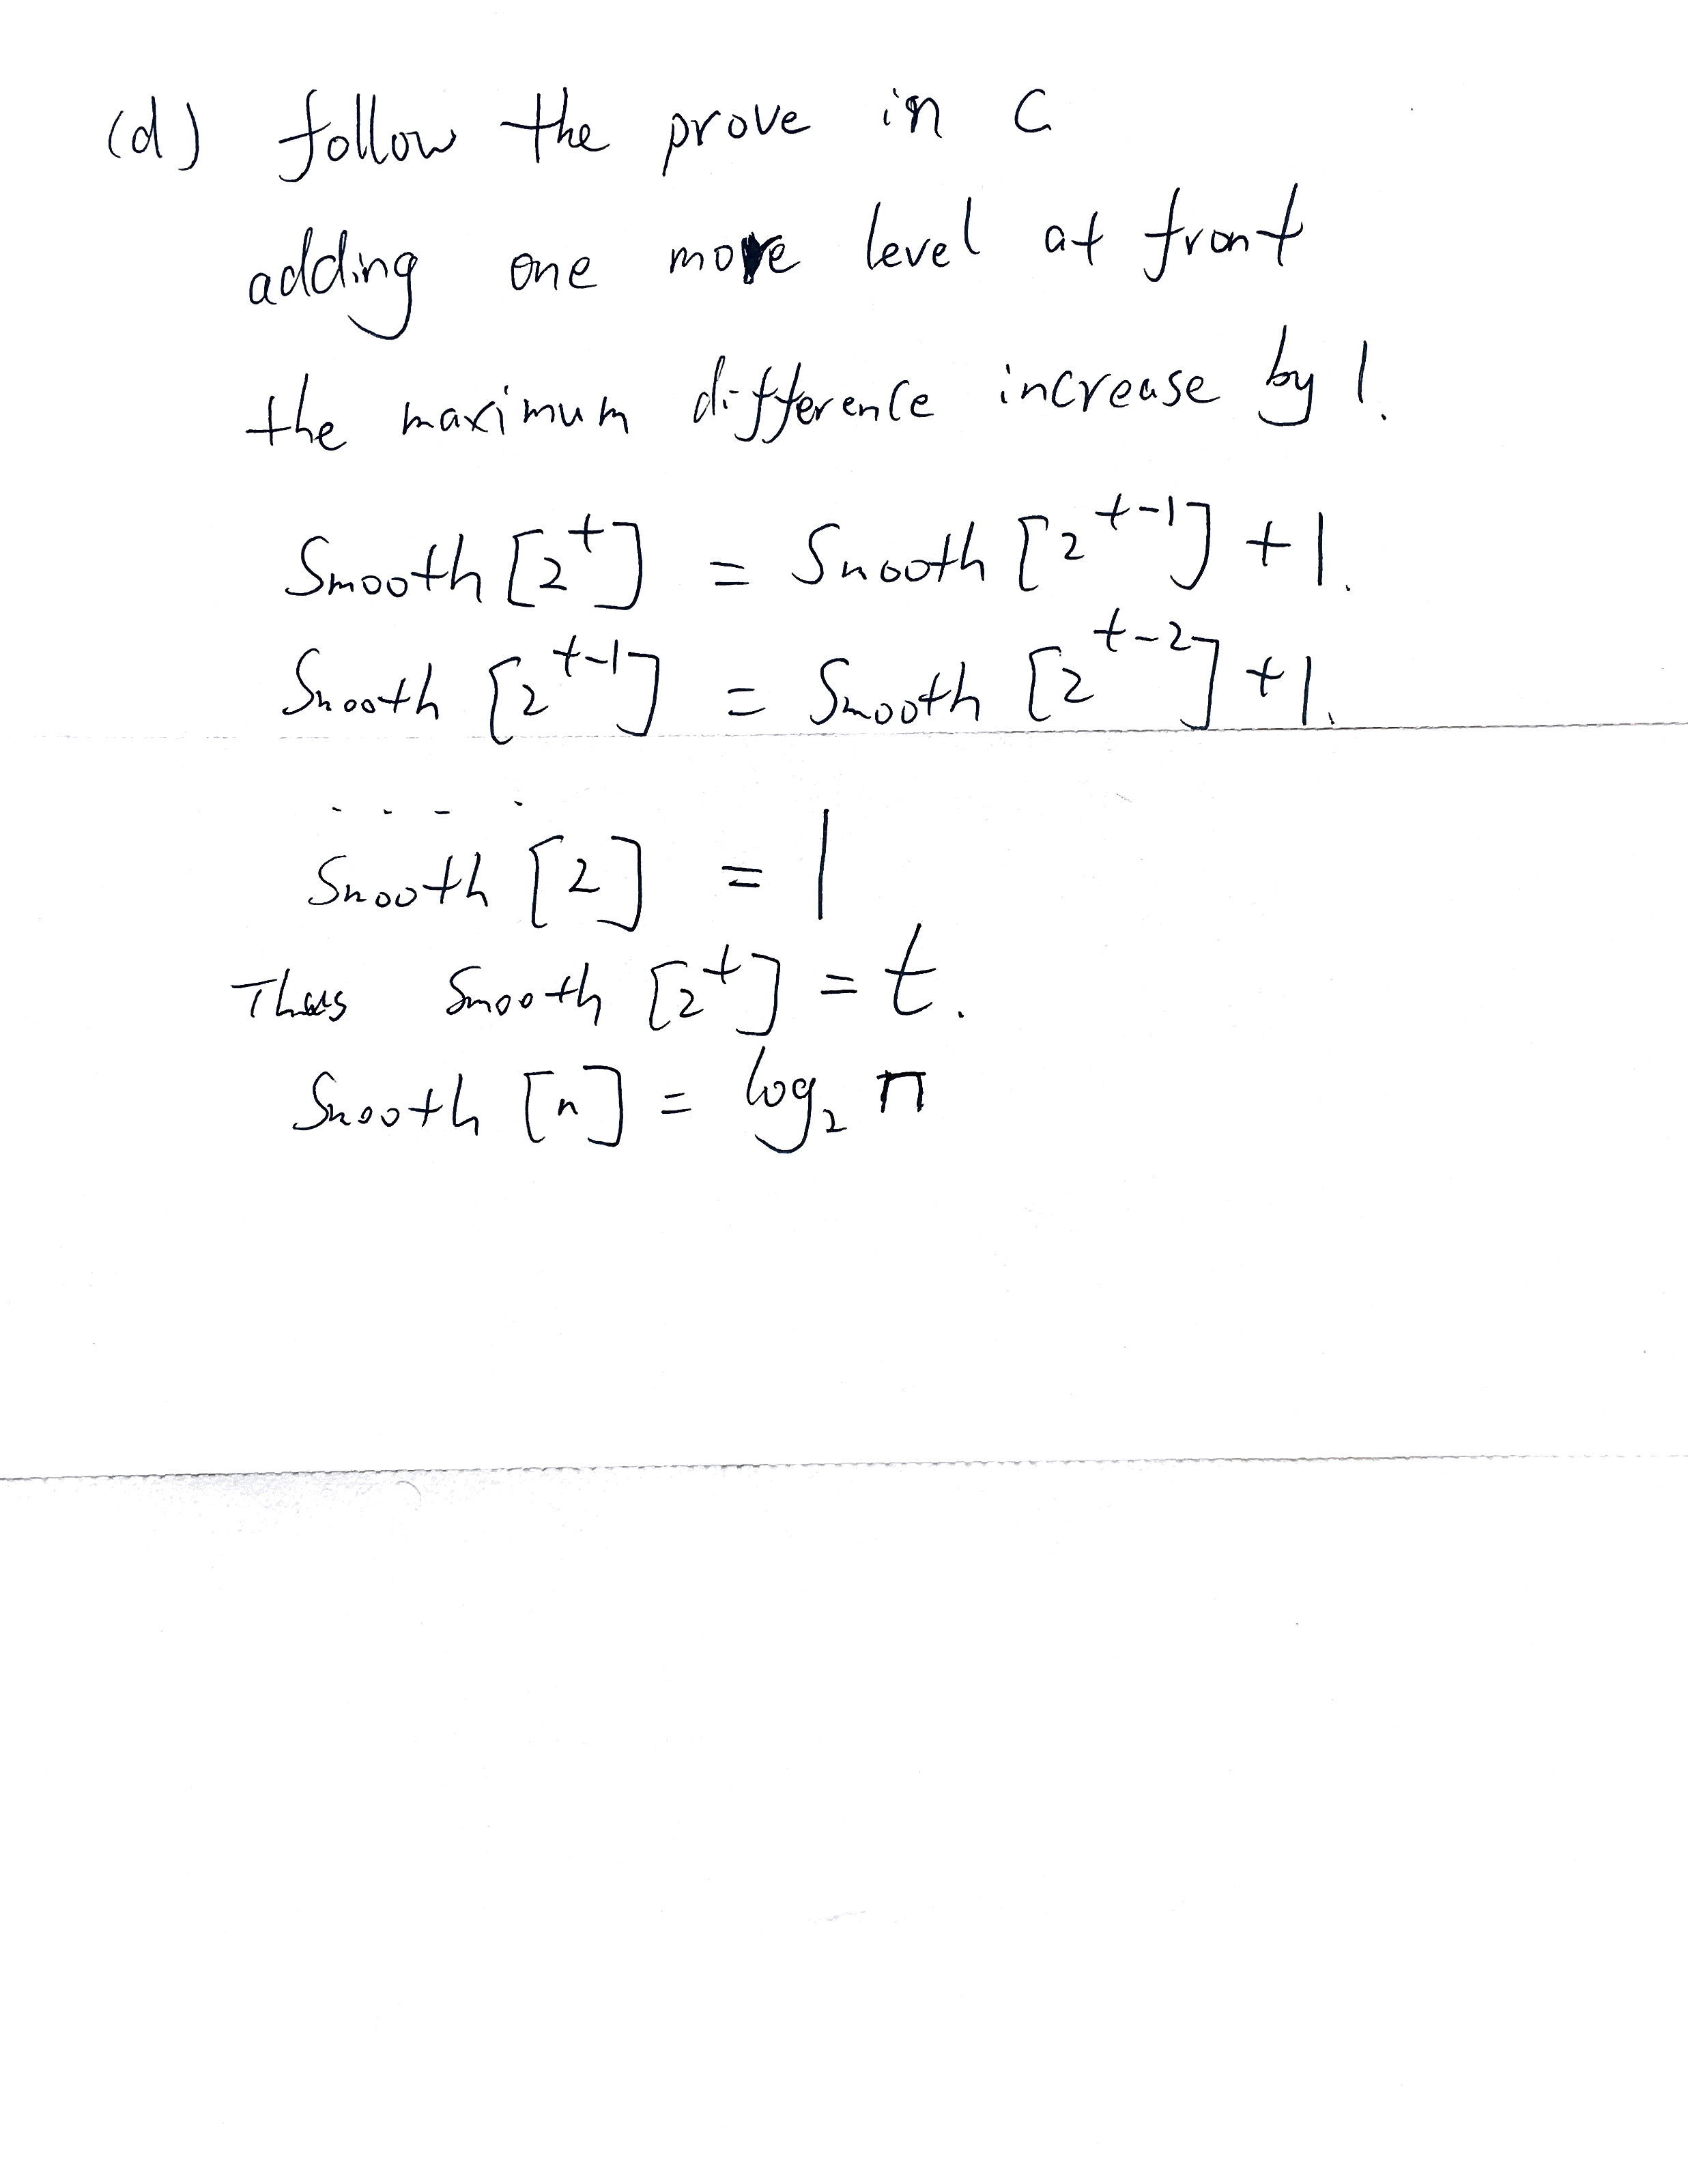 (d) follow the prove in C
adding one more level at front
the maximum difference increase by 1.
Smooth [2^t] = Smooth [2^{t-1}] + 1.
Smooth [2^{t-1}] = Smooth [2^{t-2}] + 1.
....
Smooth [2] = 1
Thus Smooth [2^t] = t.
Smooth [n] = log_2 n